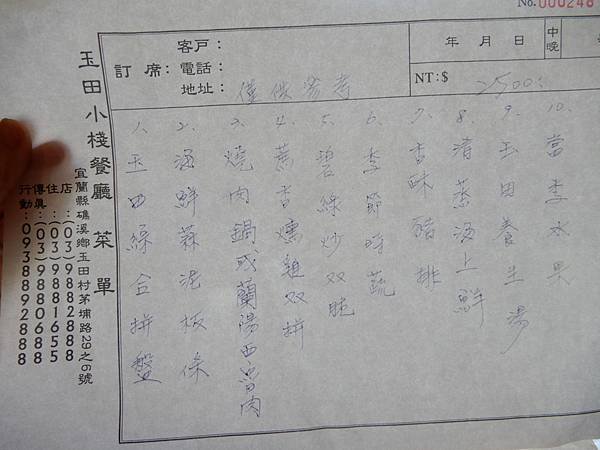 No.000248
玉田小棧餐廳 菜單
宜蘭縣礁溪鄉玉田村茅埔路29之6號
店：(03)9882888
住：(03)9881655
傳真：(03)9880688
行動：0938892888
訂席：
客戶：
電話：
地址：
僅供參考
年 月 日
中
晚
NT:$ 2500.
1、玉田綜合拼盤
2、海鮮蒜泥板條
3、燒肉鍋或蘭陽西魯肉
4、蔗香燻雞双拼
5、碧綠炒双脆
6、季節時蔬
7、香酥豬排
8、清蒸海上鮮
9、玉田養生湯
10、當季水果